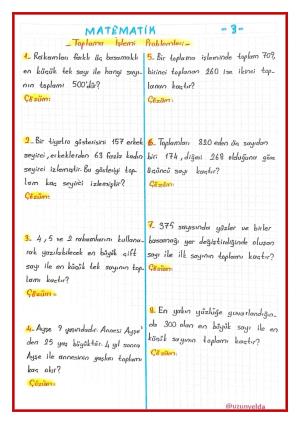 MATEMATİK -3-
Toplama İşlemi Problemleri
1. Rakamları farklı üç basamaklı
en küçük tek sayı ile hangi sayı-
nın toplamı 500'dür?
Çözüm:
2. Bir tiyatro gösterisini 157 erkek
seyirci, erkeklerden 63 fazla kadın
seyirci izlemiştir. Bu gösteriyi top-
lam kaç seyirci izlemiştir?
Çözüm:
3. 4, 5 ve 2 rakamlarını kullana-
rak yazılabilecek en büyük çift
sayı ile en küçük tek sayının top-
lamı kaçtır?
Çözüm:
4. Ayşe 9 yaşındadır. Annesi Ayşe'
den 25 yaş büyüktür. 4 yıl sonra
Ayşe ile annesinin yaşları toplamı
kaç olur?
Çözüm:
5. Bir toplama işleminde toplam 709,
birinci toplanan 260 ise ikinci top-
lanan kaçtır?
Çözüm:
6. Toplamları 820 eden üç sayıdan
biri 174, diğeri 268 olduğuna göre
üçüncü sayı kaçtır?
Çözüm:
7. 375 sayısında yüzler ve birler
basamağı yer değiştirdiğinde oluşan
sayı ile ilk sayının toplamı kaçtır?
Çözüm:
8. En yakın yüzlüğe yuvarlandığın-
da 300 olan en büyük sayı ile en
küçük sayının toplamı kaçtır?
Çözüm:
@uzunyelda